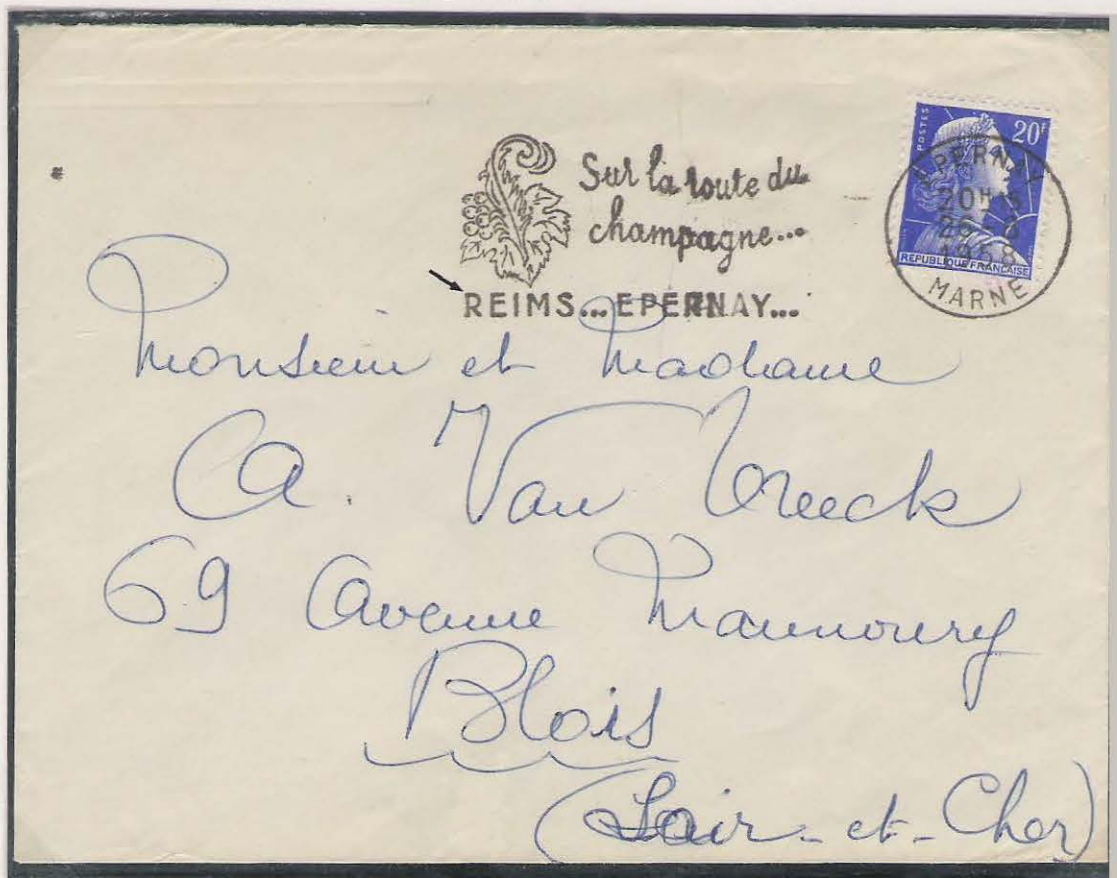 Sur la route du
champagne...
REIMS...EPERNAY...
POSTES
20F
REPUBLIQUE FRANÇAISE
EPERNAY
20H 15
1958
MARNE
Monsieur et Madame
A. Van
69 Avenue Maunoury
Blois
(Loir-et-Cher)